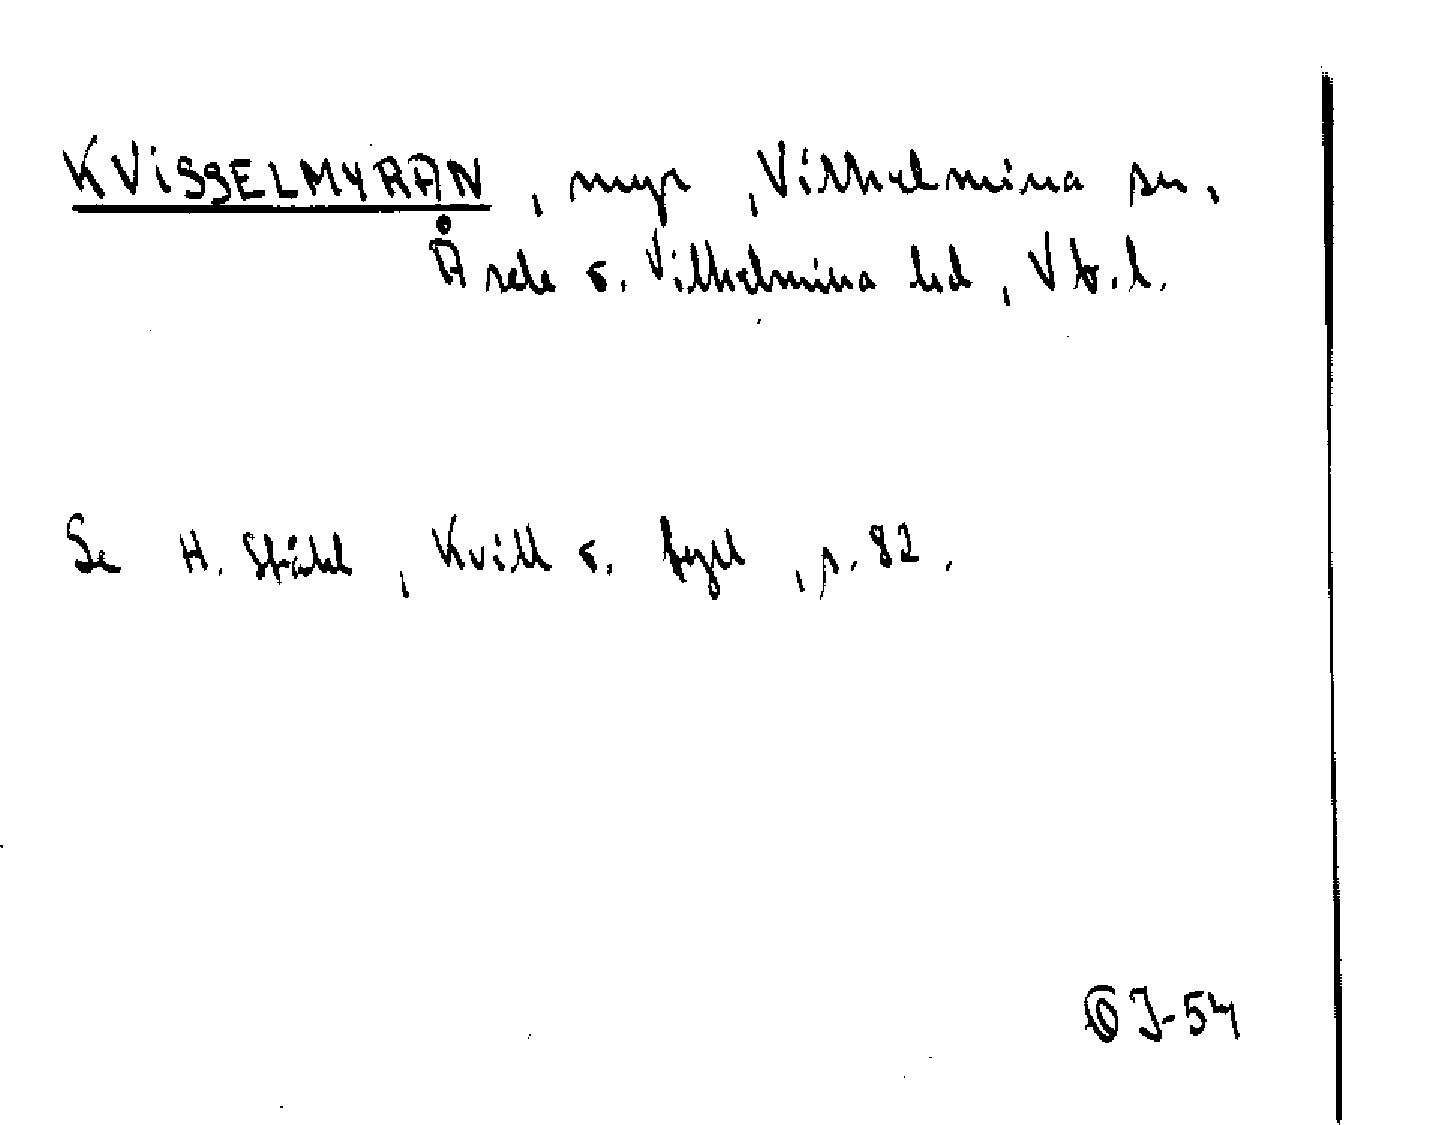 KVISSELMYRAN, myr, Vilhelmina sn,
Åsele o. Vilhelmina hd, Vb.l.
Se H. Ståhl, Kvill o. tyll, s. 82.
OJ-54